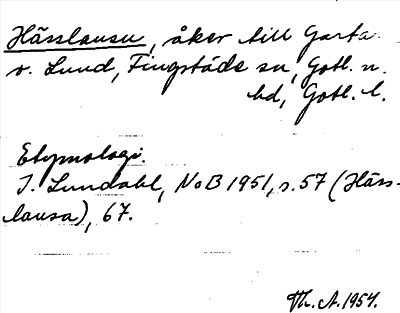 Hässlausu, åker till Garta
v. Lund, Fingståde sn, Gotl. n.
hd, Gotl. l.
Etymologi.
I. Lundahl, NoB 1951, s. 57 (Häss-
lausa), 67.
Th. A. 1954.